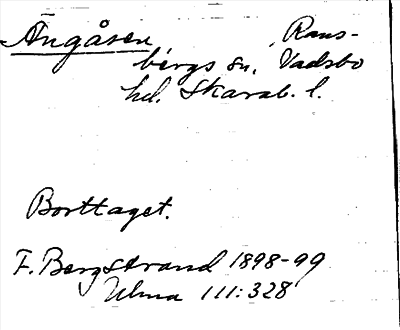 Ängåsen, Rans-
bergs sn, Vadsbo
hd. Skarab. l.
Borttaget.
F. Bergstrand 1898-99
Ulma 111:328